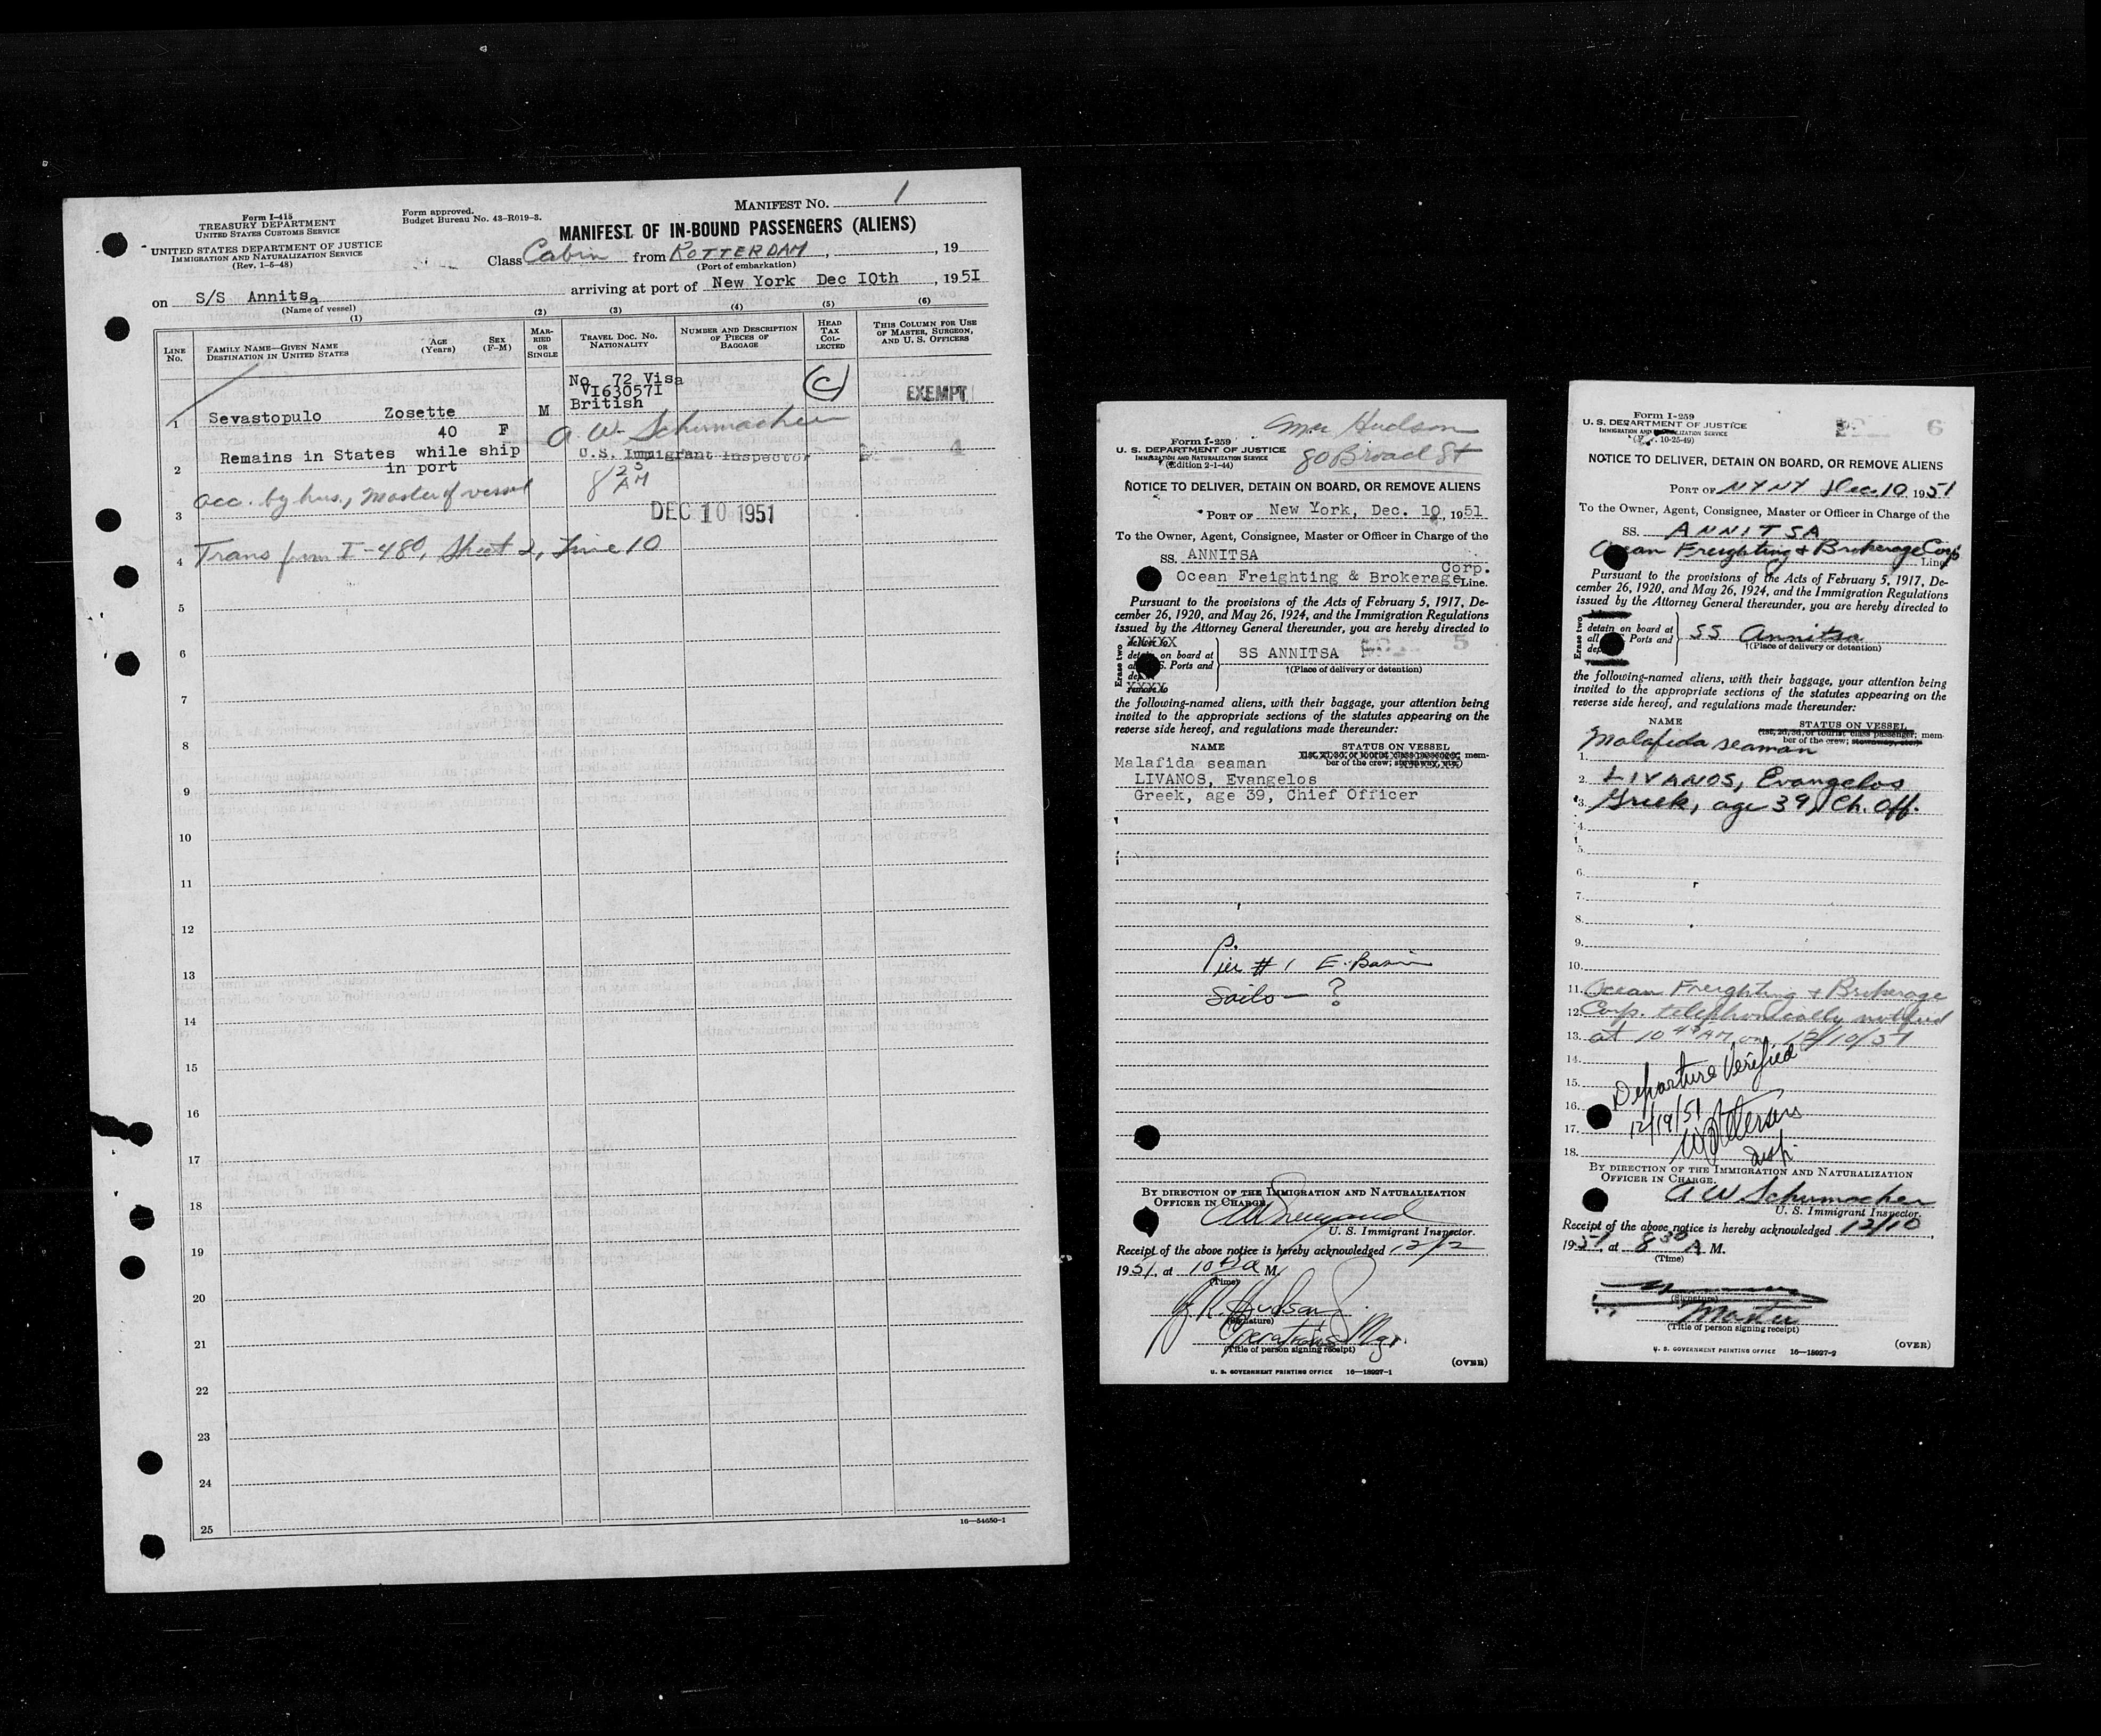 Form I-415
TREASURY DEPARTMENT
UNITED STATES CUSTOMS SERVICE
UNITED STATES DEPARTMENT OF JUSTICE
IMMIGRATION AND NATURALIZATION SERVICE
(Rev. 1-5-48)
Form approved.
Budget Bureau No. 43-R019-3.
MANIFEST NO. 1
MANIFEST OF IN-BOUND PASSENGERS (ALIENS)
Class Cabin from ROTTERDAM, , 19
(Port of embarkation)
on S/S Annitsa arriving at port of New York Dec 10th , 1951
(Name of vessel)
(1) (2) (3) (4) (5) (6)
LINE No.
FAMILY NAME—GIVEN NAME
DESTINATION IN UNITED STATES
AGE (Years)
SEX (F-M)
MARRIED OR SINGLE
TRAVEL DOC. NO.
NATIONALITY
NUMBER AND DESCRIPTION OF PIECES OF BAGGAGE
HEAD TAX COLLECTED
THIS COLUMN FOR USE OF MASTER, SURGEON, AND U. S. OFFICERS
No 72 Visa
VI630571
British
(C)
EXEMPT
1 Sevastopulo Zosette M
40 F
A. W. Schumacher
U.S. Immigrant Inspector 4
2 Remains in States while ship
in port
8 25 AM
acc. by hus., Master of vessel
3 DEC 10 1951
4 Trans from I-480, Sheet 2, Line 10
5
6
7
8
9
10
11
12
13
14
15
16
17
18
19
20
21
22
23
24
25
16—54650-1
Mr Hudson
80 Broad St
Form I-259
U. S. DEPARTMENT OF JUSTICE
IMMIGRATION AND NATURALIZATION SERVICE
(Edition 2-1-44)
NOTICE TO DELIVER, DETAIN ON BOARD, OR REMOVE ALIENS
PORT OF New York, Dec. 10, 1951
To the Owner, Agent, Consignee, Master or Officer in Charge of the
SS. ANNITSA
Ocean Freighting & Brokerage Corp. Line.
Pursuant to the provisions of the Acts of February 5, 1917, De-
cember 26, 1920, and May 26, 1924, and the Immigration Regulations
issued by the Attorney General thereunder, you are hereby directed to
Erase two
XXXXX
detain on board at
S. Ports and
remove to
SS ANNITSA 5
†(Place of delivery or detention)
the following-named aliens, with their baggage, your attention being
invited to the appropriate sections of the statutes appearing on the
reverse side hereof, and regulations made thereunder:
NAME STATUS ON VESSEL
(1st, 2d, 3d, or tourist class passenger; mem-
ber of the crew; stowaway, etc.)
Malafida seaman
LIVANOS, Evangelos
Greek, age 39, Chief Officer
P.
Pier # 1 E. Basin
Sails — ?
BY DIRECTION OF THE IMMIGRATION AND NATURALIZATION
OFFICER IN CHARGE.
U. S. Immigrant Inspector.
Receipt of the above notice is hereby acknowledged 12/12
1951, at 10 A M.
(Time)
J. R. Hudson
(Signature)
Operations Mgr.
(Title of person signing receipt)
(OVER)
U. S. GOVERNMENT PRINTING OFFICE 16—18027-1
Form I-259
U. S. DEPARTMENT OF JUSTICE
IMMIGRATION AND NATURALIZATION SERVICE
10-25-49)
6
NOTICE TO DELIVER, DETAIN ON BOARD, OR REMOVE ALIENS
PORT OF NYNY Dec. 10 1951
To the Owner, Agent, Consignee, Master or Officer in Charge of the
SS. ANNITSA
Ocean Freighting & Brokerage Corp
Line
Pursuant to the provisions of the Acts of February 5, 1917, De-
cember 26, 1920, and May 26, 1924, and the Immigration Regulations
issued by the Attorney General thereunder, you are hereby directed to
Erase two
detain on board at
all Ports and
SS Annitsa
†(Place of delivery or detention)
the following-named aliens, with their baggage, your attention being
invited to the appropriate sections of the statutes appearing on the
reverse side hereof, and regulations made thereunder:
NAME STATUS ON VESSEL
(1st, 2d, 3d, or tourist class passenger; mem-
ber of the crew; stowaway, etc.)
Malafida seaman
1.
2. LIVANOS, Evangelos
3. Greek, age 39, Ch. Off.
4.
5.
6.
7.
8.
9.
10.
11. Ocean Freighting & Brokerage
12. Corp. telephonically notified
13. at 10 45 AM on 12/10/51
14.
Departure Verified
15.
16. 12/19/51
17.
18. Insp.
BY DIRECTION OF THE IMMIGRATION AND NATURALIZATION
OFFICER IN CHARGE.
A W Schumacher
U. S. Immigrant Inspector.
Receipt of the above notice is hereby acknowledged 12/10,
1951, at 8 30 A. M.
(Time)
(Signature)
Master
(Title of person signing receipt)
(OVER)
U. S. GOVERNMENT PRINTING OFFICE 16—18027-2